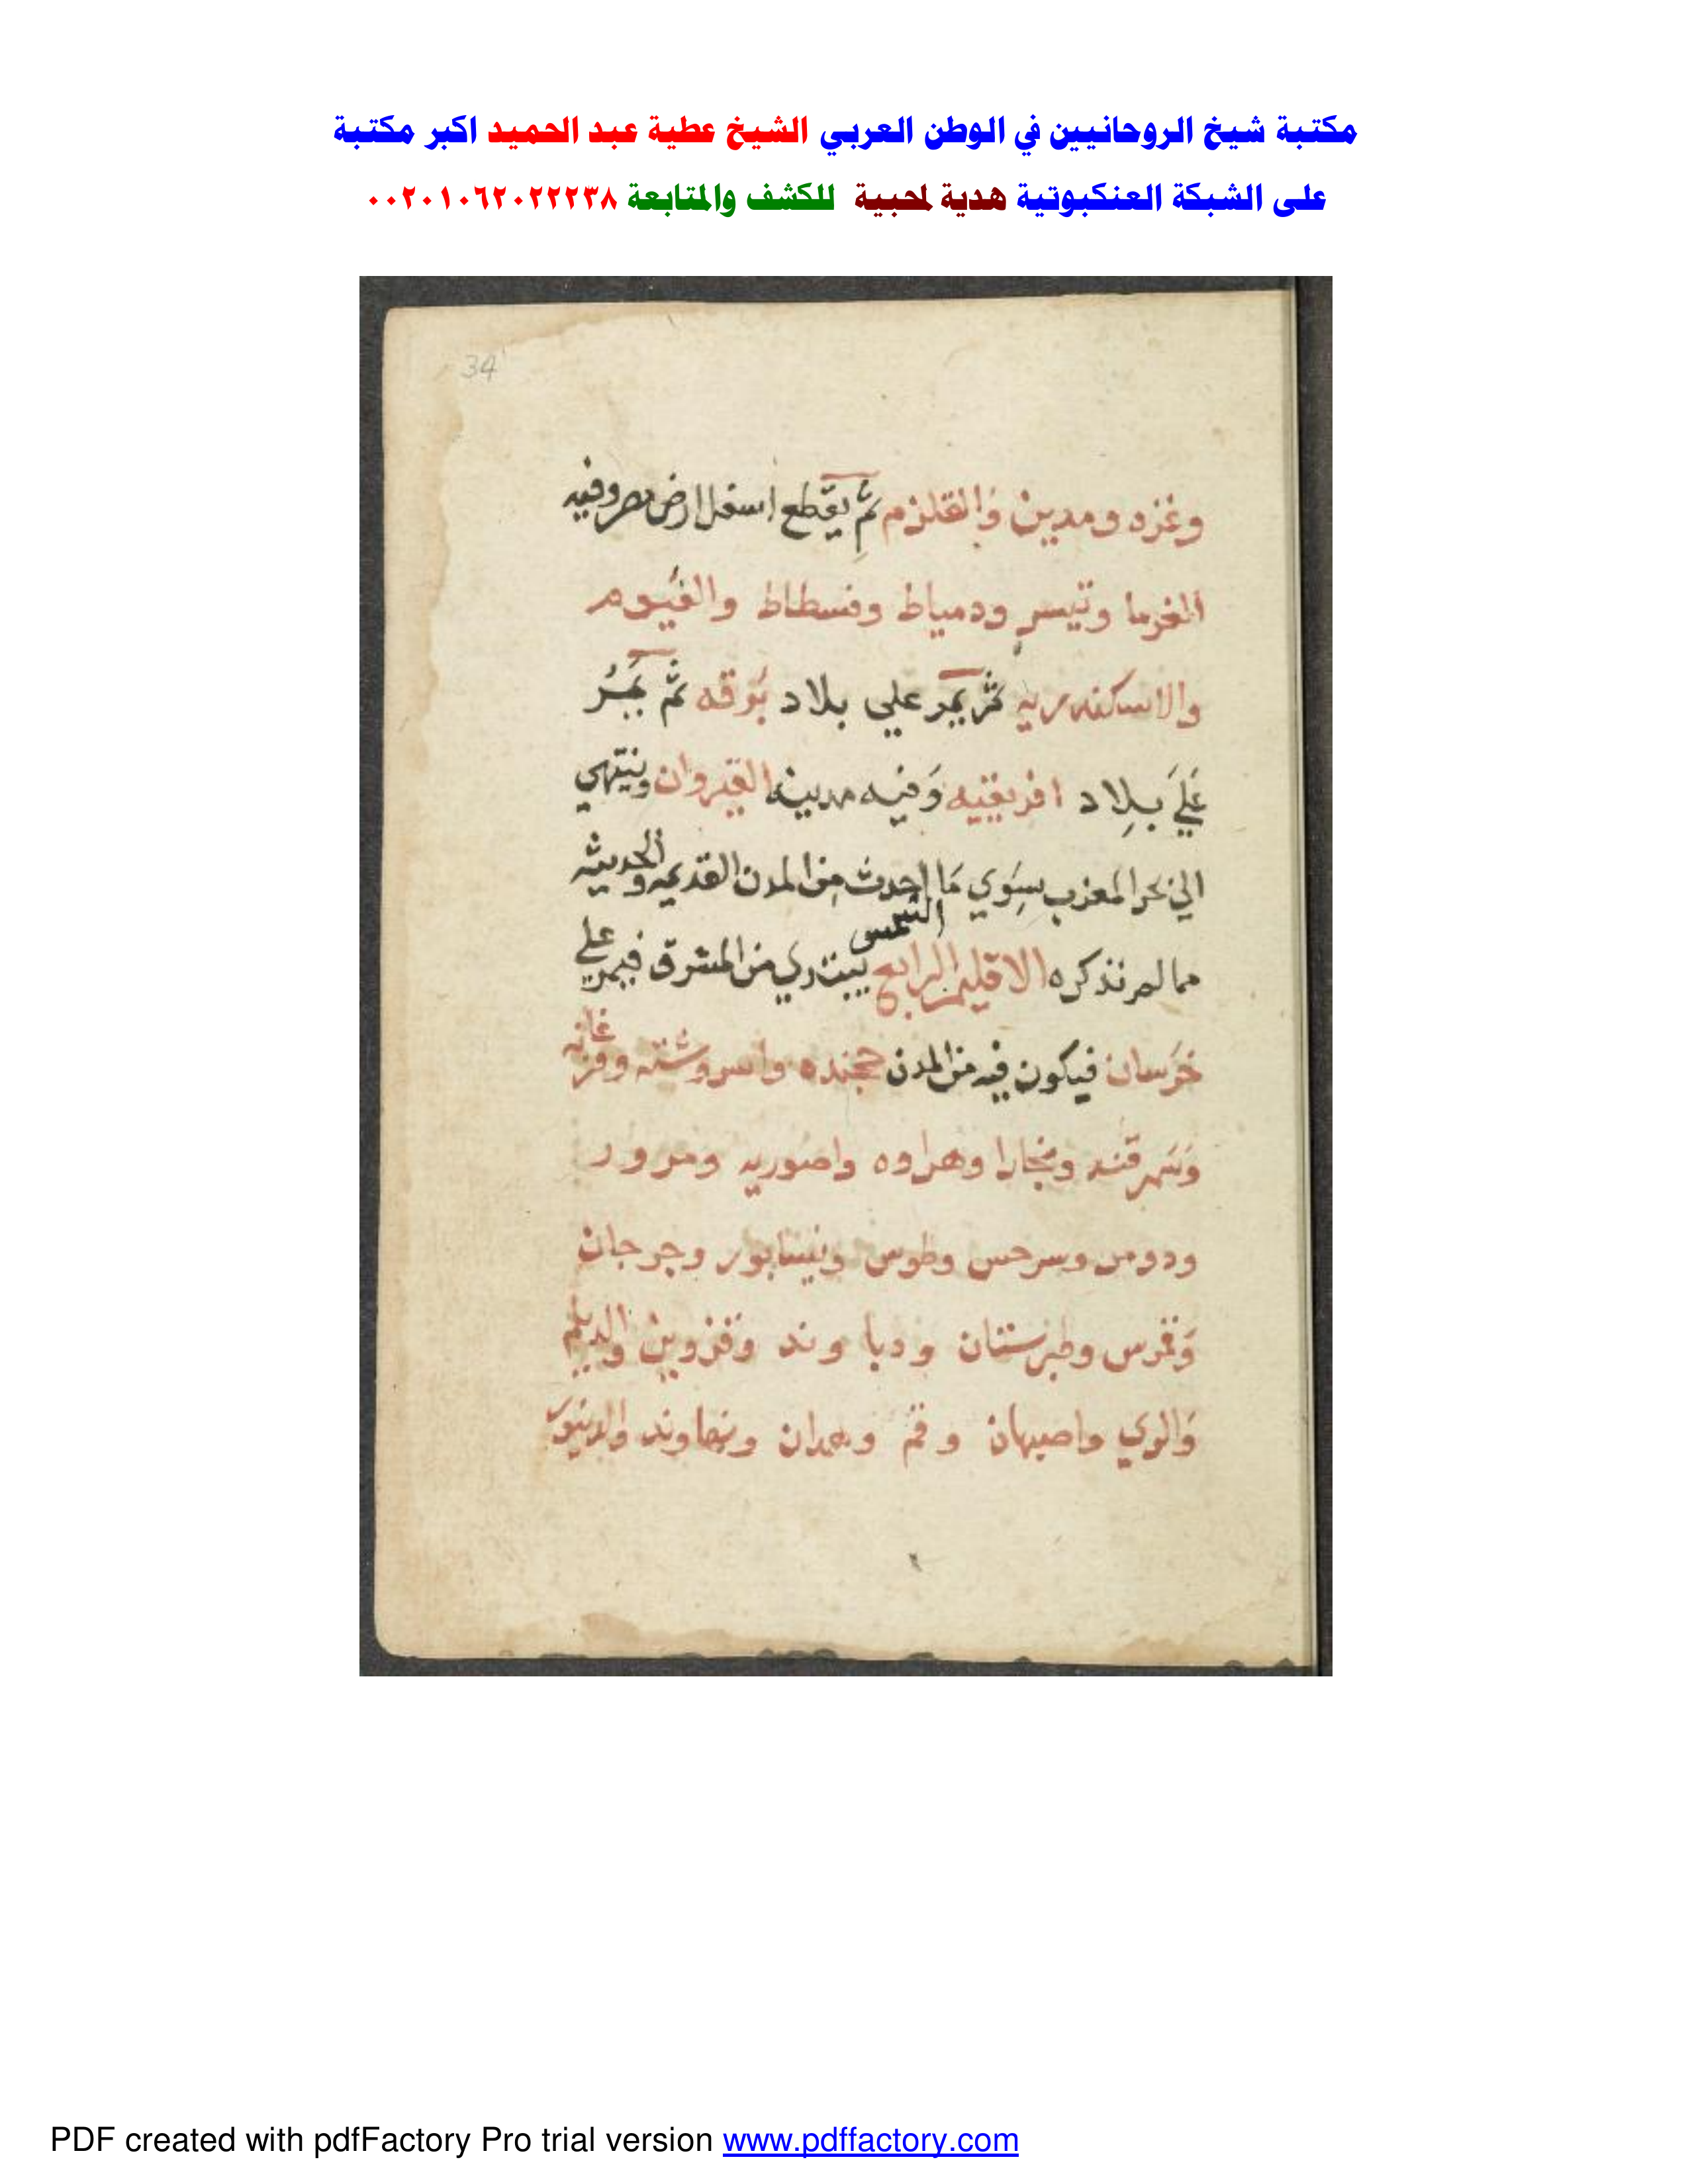 مكتبة شيخ الروحانيين في الوطن العربي الشيخ عطية عبد الحميد اكبر مكتبة
على الشبكة العنكبوتية هدية لمحبية للكشف والمتابعة ٠٠٢٠١٠٦٢٠٢٢٢٣٨
34
وغزه ومدين والقلزم ثم يقطع اسفل ارض مصر وفيه
الفرما وتنيس ودمياط وفسطاط والفيوم
والاسكندريه ثم يمر علي بلاد برقه ثم يمر
علي بلاد افريقيه وفيه مدينه القيروان وينتهي
الي بحر المغرب سوي ما احدث من المدن القديمه والحديثه
مما لم نذكره الاقليم الرابع الشمس يبتدي من المشرق فيمر علي
خرسان فيكون فيه من المدن خجنده واسروشنه وفرغانه
وسمرقند وبخارا وهراوه واصوريه ومرور
ودومن وسرخس وطوس ونيسابور وجرجان
وقومس وطبرستان ودبا وند وقزوين والديلم
والري واصبهان وقم وهمدان ونهاوند والدينور
PDF created with pdfFactory Pro trial version www.pdffactory.com